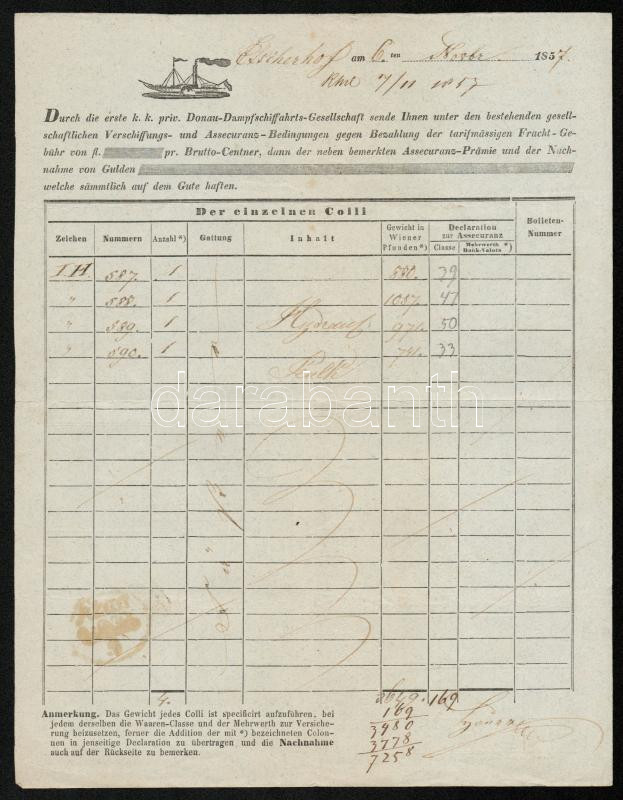 am 6. ten 1857.
7/11 1857
Durch die erste k. k. priv. Donau-Dampfschiffahrts-Gesellschaft sende Ihnen unter den bestehenden gesell-
schaftlichen Verschiffungs- und Assecuranz-Bedingungen gegen Bezahlung der tarifmässigen Fracht-Ge-
bühr von fl. pr. Brutto-Centner, dann der neben bemerkten Assecuranz-Prämie und der Nach-
nahme von Gulden
welche sämmtlich auf dem Gute haften.
Der einzelnen Colli
Zeichen Nummern Anzahl *) Gattung Inhalt Gewicht in Wiener Pfunden *) Declaration zur Assecuranz Classe Mehrwerth *) Bank-Valuta Bolleten-Nummer
587. 1 39
" 588. 1 1057. 47
" 589. 1 971. 50
" 590. 1 33
darabanth
4. 169.
169
3480
3778
7258
Anmerkung. Das Gewicht jedes Colli ist specificirt aufzuführen, bei
jedem derselben die Waaren-Classe und der Mehrwerth zur Versiche-
rung beizusetzen, ferner die Addition der mit *) bezeichneten Colon-
nen in jenseitige Declaration zu übertragen und die Nachnahme
auch auf der Rückseite zu bemerken.